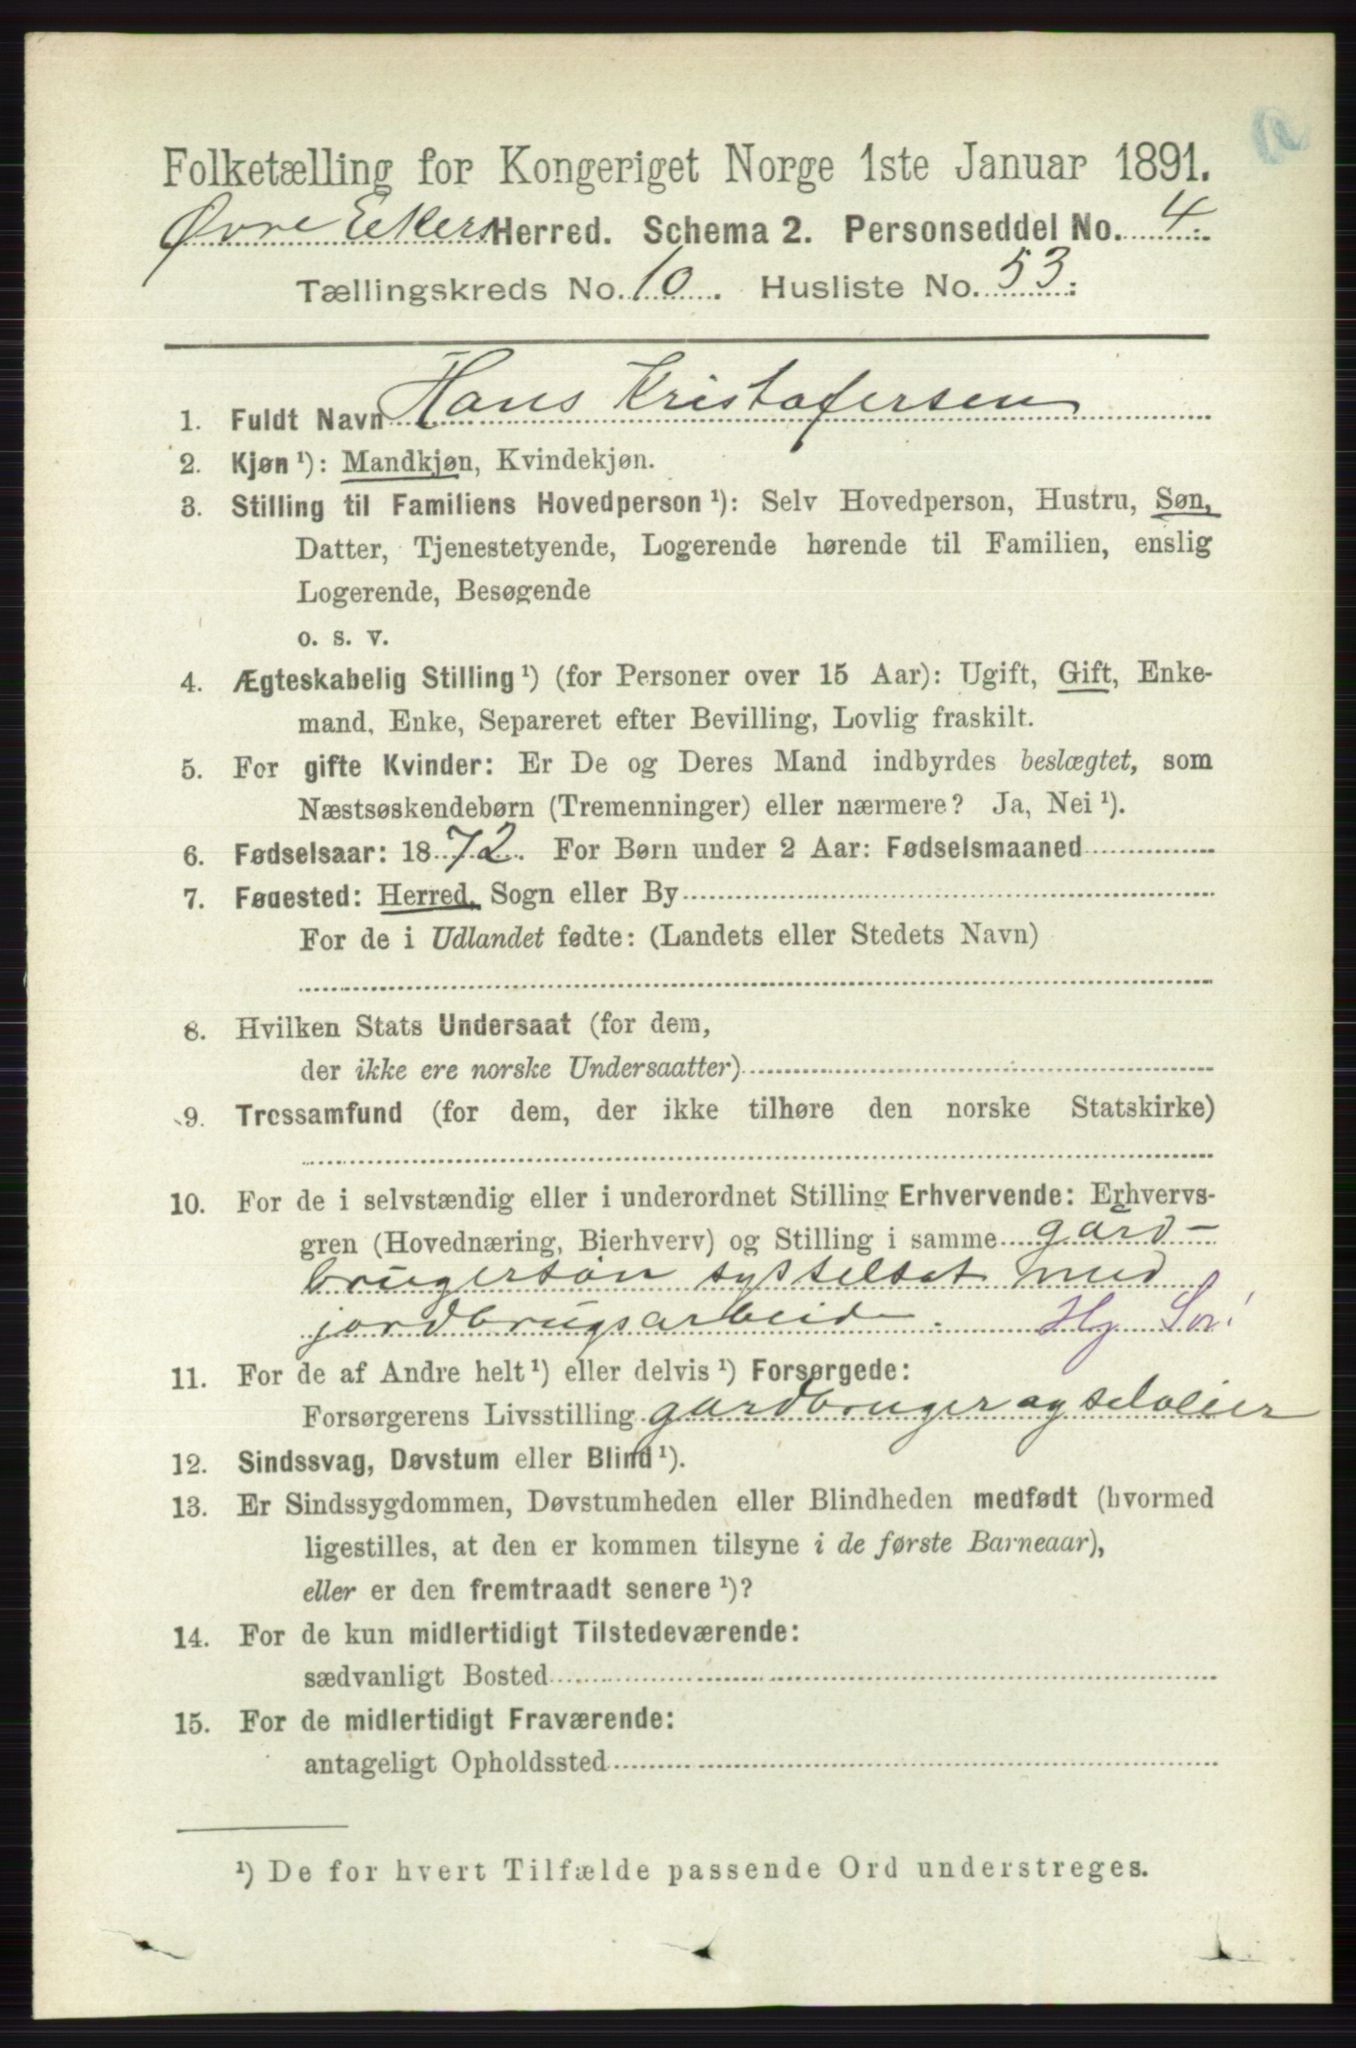 Folketælling for Kongeriget Norge 1ste Januar 1891.
Øvre Eker Herred. Schema 2. Personseddel No. 4.
Tællingskreds No. 10. Husliste No. 53.
1. Fuldt Navn Hans Kristofersen
2. Kjøn¹): Mandkjøn, Kvindekjøn.
3. Stilling til Familiens Hovedperson¹): Selv Hovedperson, Hustru, Søn,
Datter, Tjenestetyende, Logerende hørende til Familien, enslig
Logerende, Besøgende
o. s. v.
4. Ægteskabelig Stilling¹) (for Personer over 15 Aar): Ugift, Gift, Enke-
mand, Enke, Separeret efter Bevilling, Lovlig fraskilt.
5. For gifte Kvinder: Er De og Deres Mand indbyrdes beslægtet, som
Næstsøskendebørn (Tremenninger) eller nærmere? Ja, Nei¹).
6. Fødselsaar: 1872. For Børn under 2 Aar: Fødselsmaaned
7. Fødested: Herred, Sogn eller By
For de i Udlandet fødte: (Landets eller Stedets Navn)
8. Hvilken Stats Undersaat (for dem,
der ikke ere norske Undersaatter)
9. Trossamfund (for dem, der ikke tilhøre den norske Statskirke)
10. For de i selvstændig eller i underordnet Stilling Erhvervende: Erhvervs-
gren (Hovednæring, Bierhverv) og Stilling i samme gard-
brugersøn sysselsat med
jordbrugsarbeid. Hj Søn
11. For de af Andre helt¹) eller delvis¹) Forsørgede:
Forsørgerens Livsstilling gardbruger og selveier
12. Sindssvag, Døvstum eller Blind¹).
13. Er Sindssygdommen, Døvstumheden eller Blindheden medfødt (hvormed
ligestilles, at den er kommen tilsyne i de første Barneaar),
eller er den fremtraadt senere¹)?
14. For de kun midlertidigt Tilstedeværende:
sædvanligt Bosted
15. For de midlertidigt Fraværende:
antageligt Opholdssted
¹) De for hvert Tilfælde passende Ord understreges.